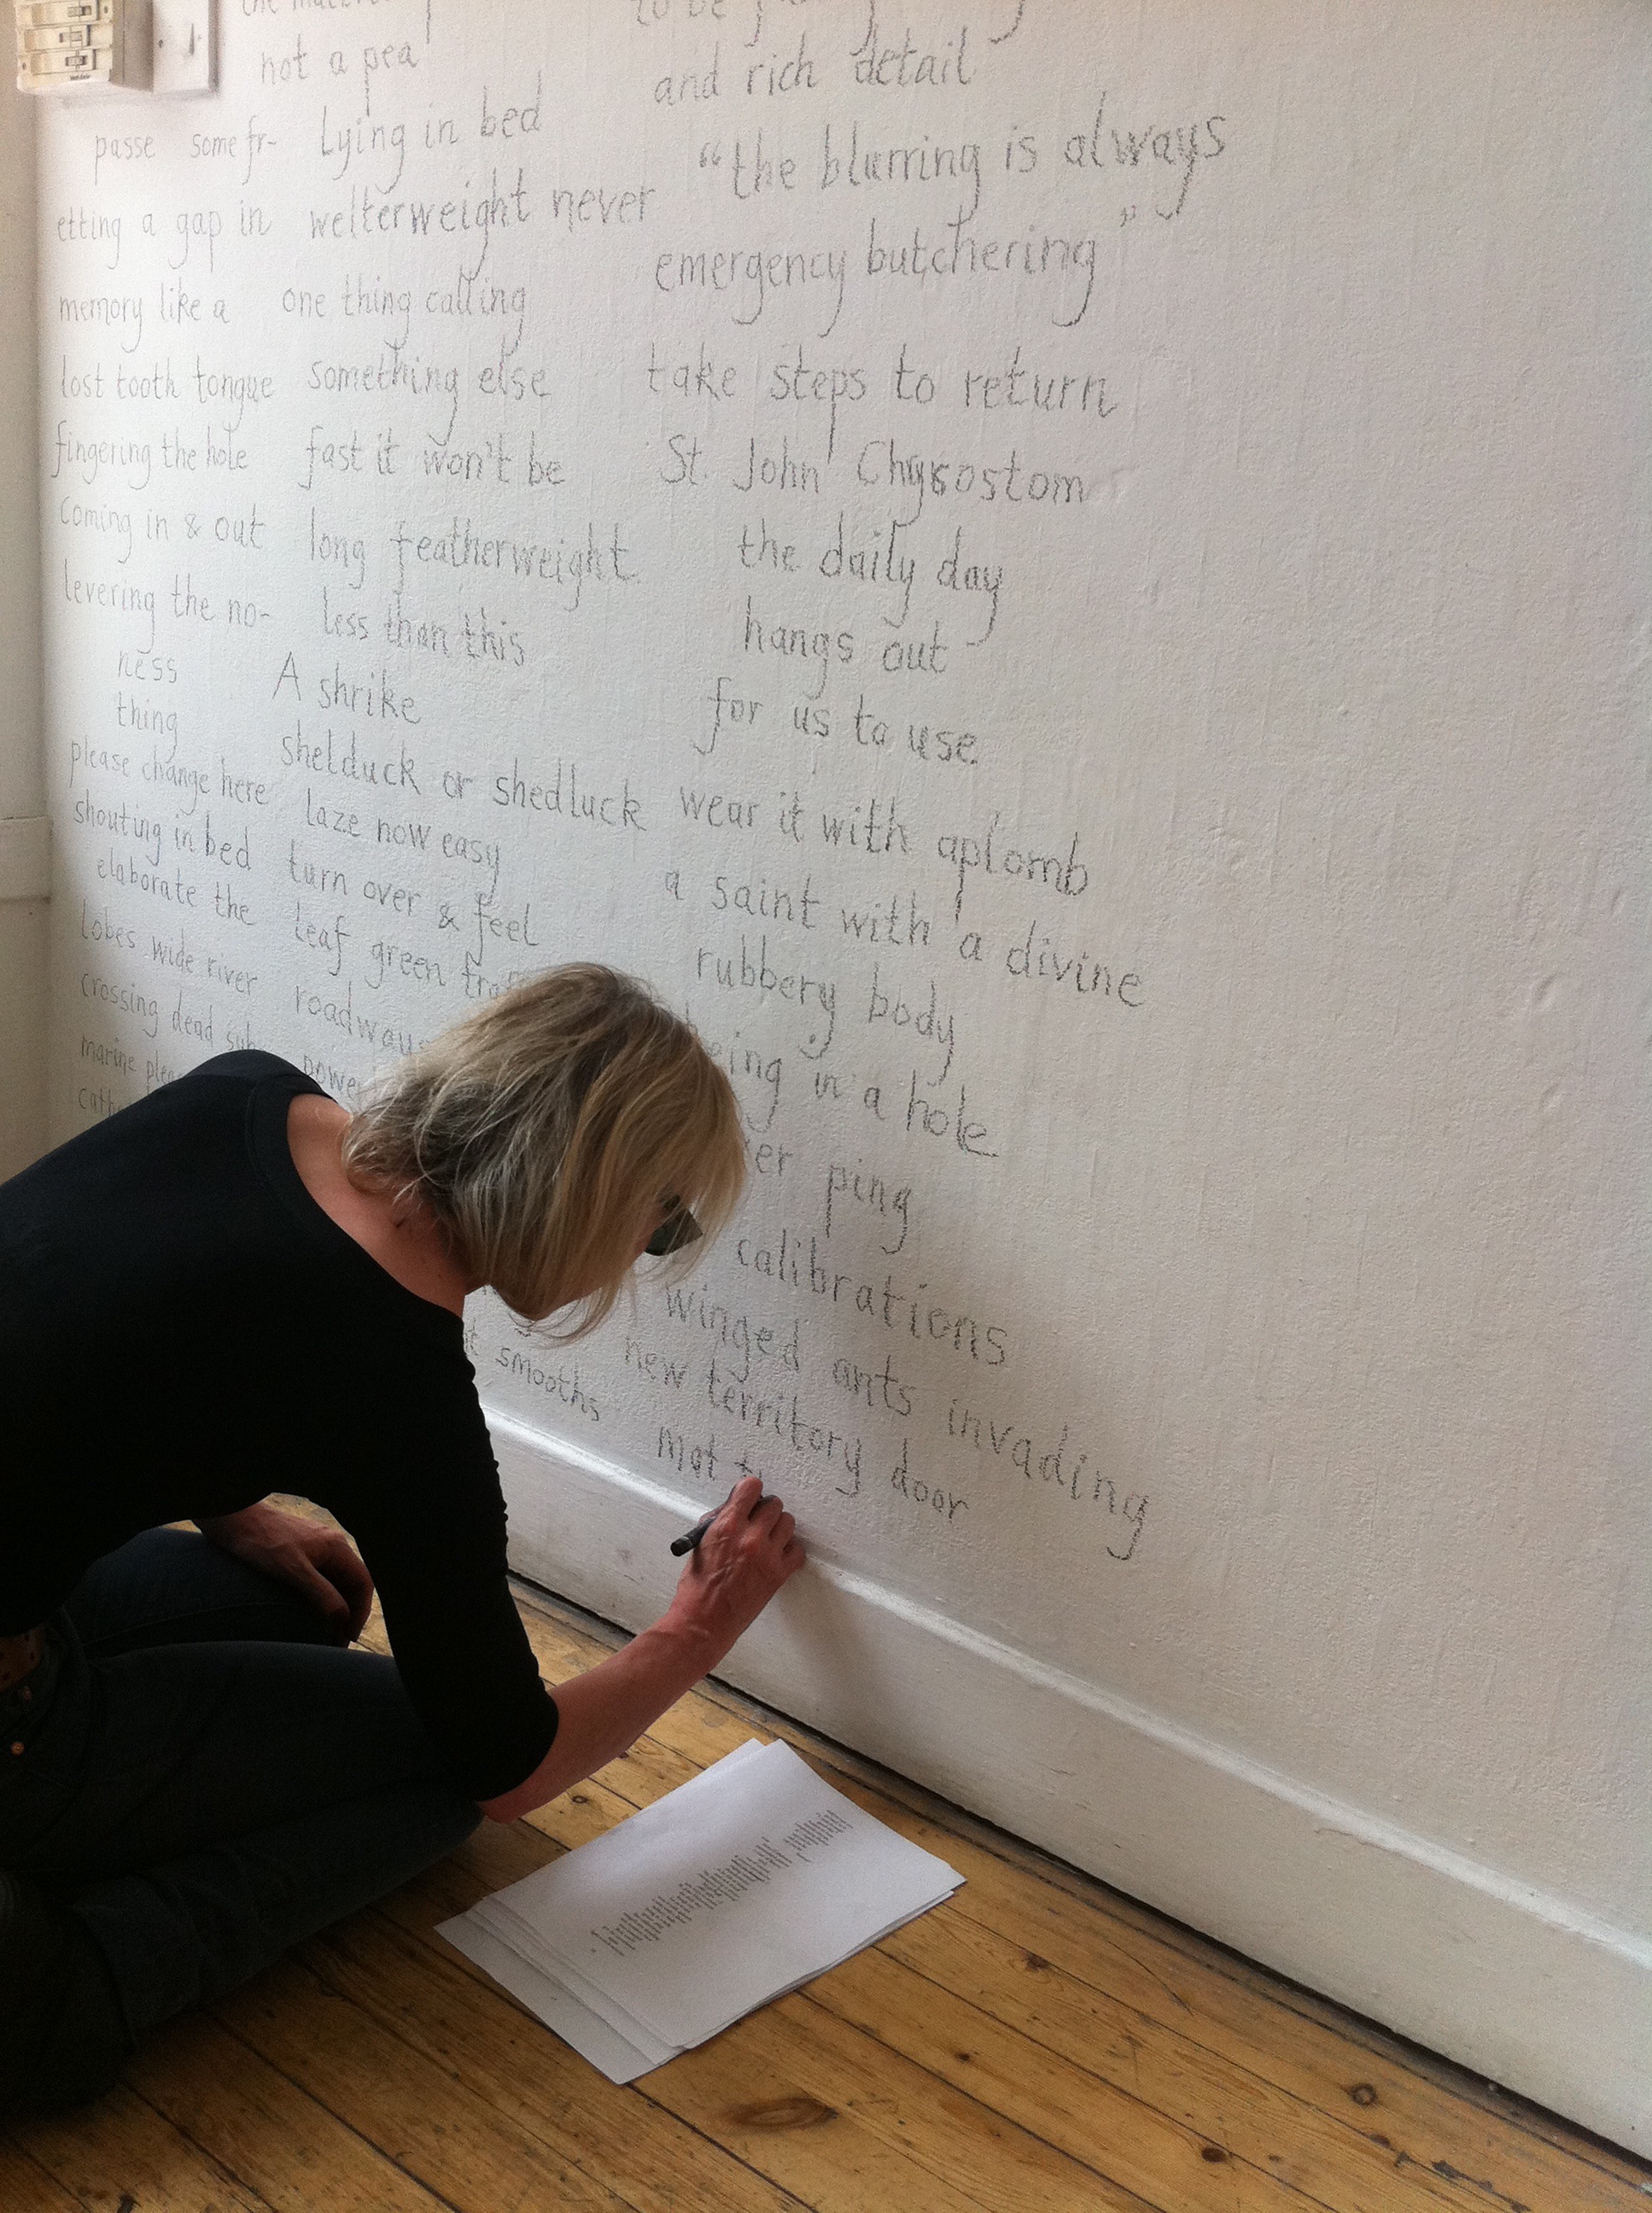 not a pea
passe some fr-
etting a gap in
memory like a
lost tooth tongue
fingering the hole
coming in & out
levering the no-
ness
thing
please change here
shouting in bed
elaborate the
lobes wide river
crossing dead sub
marine
Lying in bed
welterweight never
one thing calling
something else
fast it won't be
long featherweight
less than this
A shrike
shelduck or shedluck
laze now easy
turn over & feel
leaf green
roadways
smooths
to be
and rich detail
"the blurring is always
emergency butchering"
take steps to return
St. John Chrysostom
the daily day
hangs out
for us to use
wear it with aplomb
a saint with a divine
rubbery body
in a hole
ping
calibrations
winged ants invading
new territory door
mat